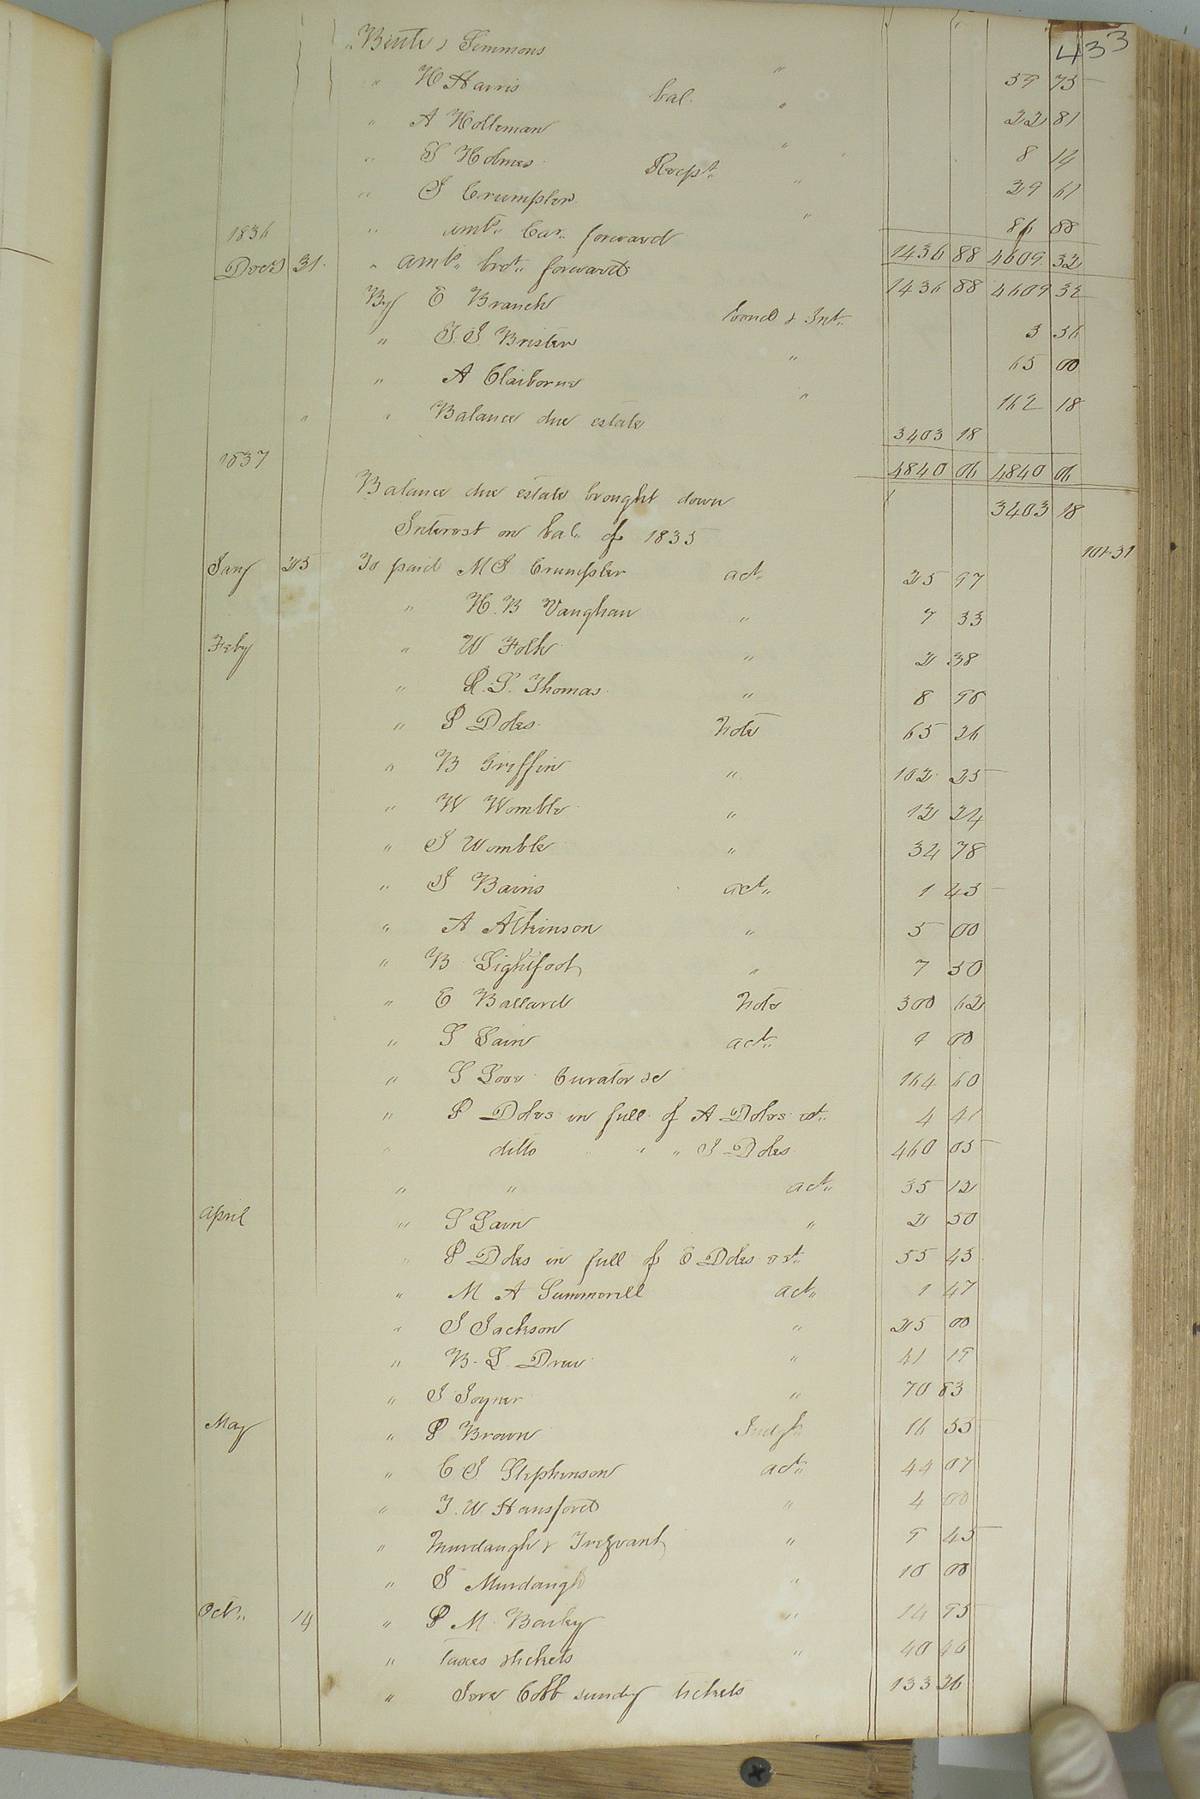 433
" Binte & Simmons "
" H Harris bal. " 59 75
" A Holleman " 22 81
" S Holmes Recpt. " 8 14
" J Crumpler " 29 61
" amt. Car. forward 86 88
1836 1436 88 4609 32
Decr 31 " amt. brot. forward 1436 88 4609 32
By E Branch bond & Int. 3 56
" T. J Brister " 65 00
" A Claiborne " 162 18
" " Balance due estate 3403 18
1837 4840 06 4840 06
Balance due estate brought down 3403 18
Interest on bal. of 1835 101.31
Jany 25 To paid M J Crumpler act. 25 97
" H. B Vaughan " 7 33
Feby " W Folk " 2 38
" R. S. Thomas " 8 98
" P Doles Note 65 26
" B Griffin " 102 25
" W Womble " 12 24
" J Womble " 34 78
" J Bains act. 1 45
" A Atkinson " 5 00
" B Lightfoot " 7 50
" E Ballard Note 300 62
" S Lain act. 9 00
" S Curator &c 164 60
" P Doles in full of A Doles est. 4 41
" ditto " " J Doles 460 05
" " act. 35 12
April " S Lain " 2 50
" P Doles in full of E Doles est. 55 43
" M A Summerell act. 1 47
" J Jackson " 25 00
" B. L. Drew " 41 19
" J Joyner " 70 83
May " P Brown Judgt. 16 55
" C J Stephenson act. 44 07
" T. W Hansford " 4 00
" Murdaugh & Trezvant " 9 45
" J Murdaugh " 10 00
Oct. 14 " P M Barky " 14 95
" Taxes & tickets " 40 46
" Jere Cobb sundry tickets 133 26